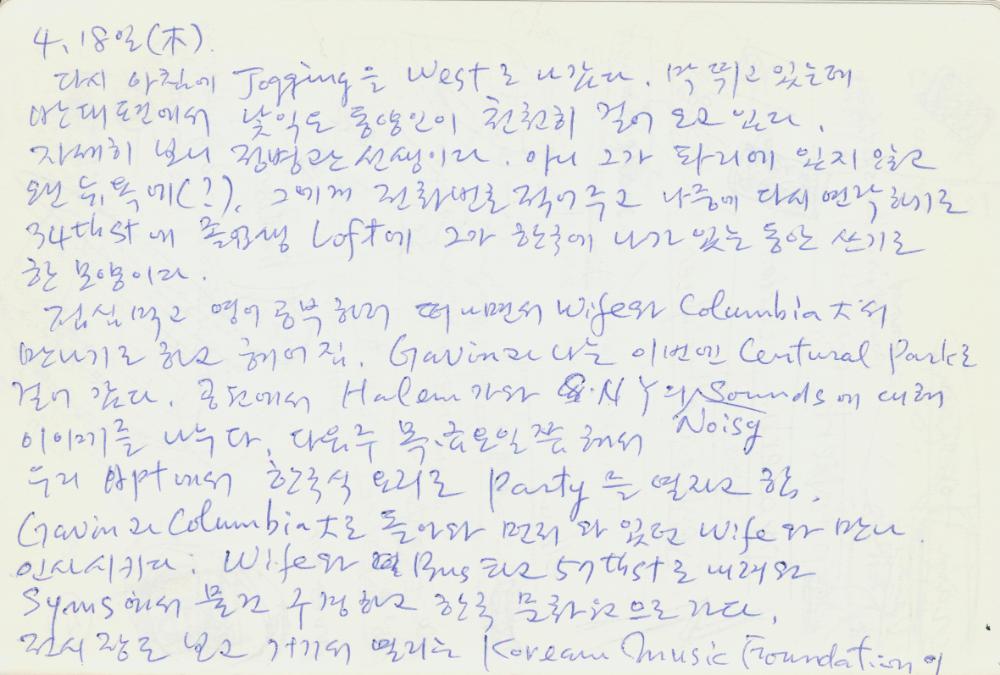 4. 18일(木).
다시 아침에 Jogging을 West로 나갔다. 막 뛰고 있는데
반대도전에서 낯익은 동양인이 천천히 걸어 오고 있다.
자세히 보니 정병관선생이다. 아니 그가 파리에 있지 않고
왠 뉴욕에(?). 그에게 전화번호 적어주고 나중에 다시 연락하기로
34th st에 Loft에 그가 한국에 나가 있는 동안 쓰기로
한 모양이다.
점심먹고 영어 공부하러 떠나면서 Wife와 Columbia大서
만나기로 하고 헤어짐. Gavin과 나는 이번엔 Centural Park로
걸어 갔다. 공원에서 Halem가와 N.Y의 Sounds에 대해
이야기를 나누다. 다음주 목.금요일쯤 해서 Noisy
우리 Apt에서 한국식 요리로 Party를 열자고 함.
Gavin과 Columbia大로 돌아와 먼저 와 있던 Wife와 만나
인사시키다. Wife와 Bus 타고 57th st로 내려와
Syms에서 물건 구경하고 한국 문화원으로 가다.
전시장을 보고 거기서 열리는 Korean Music Foundation의